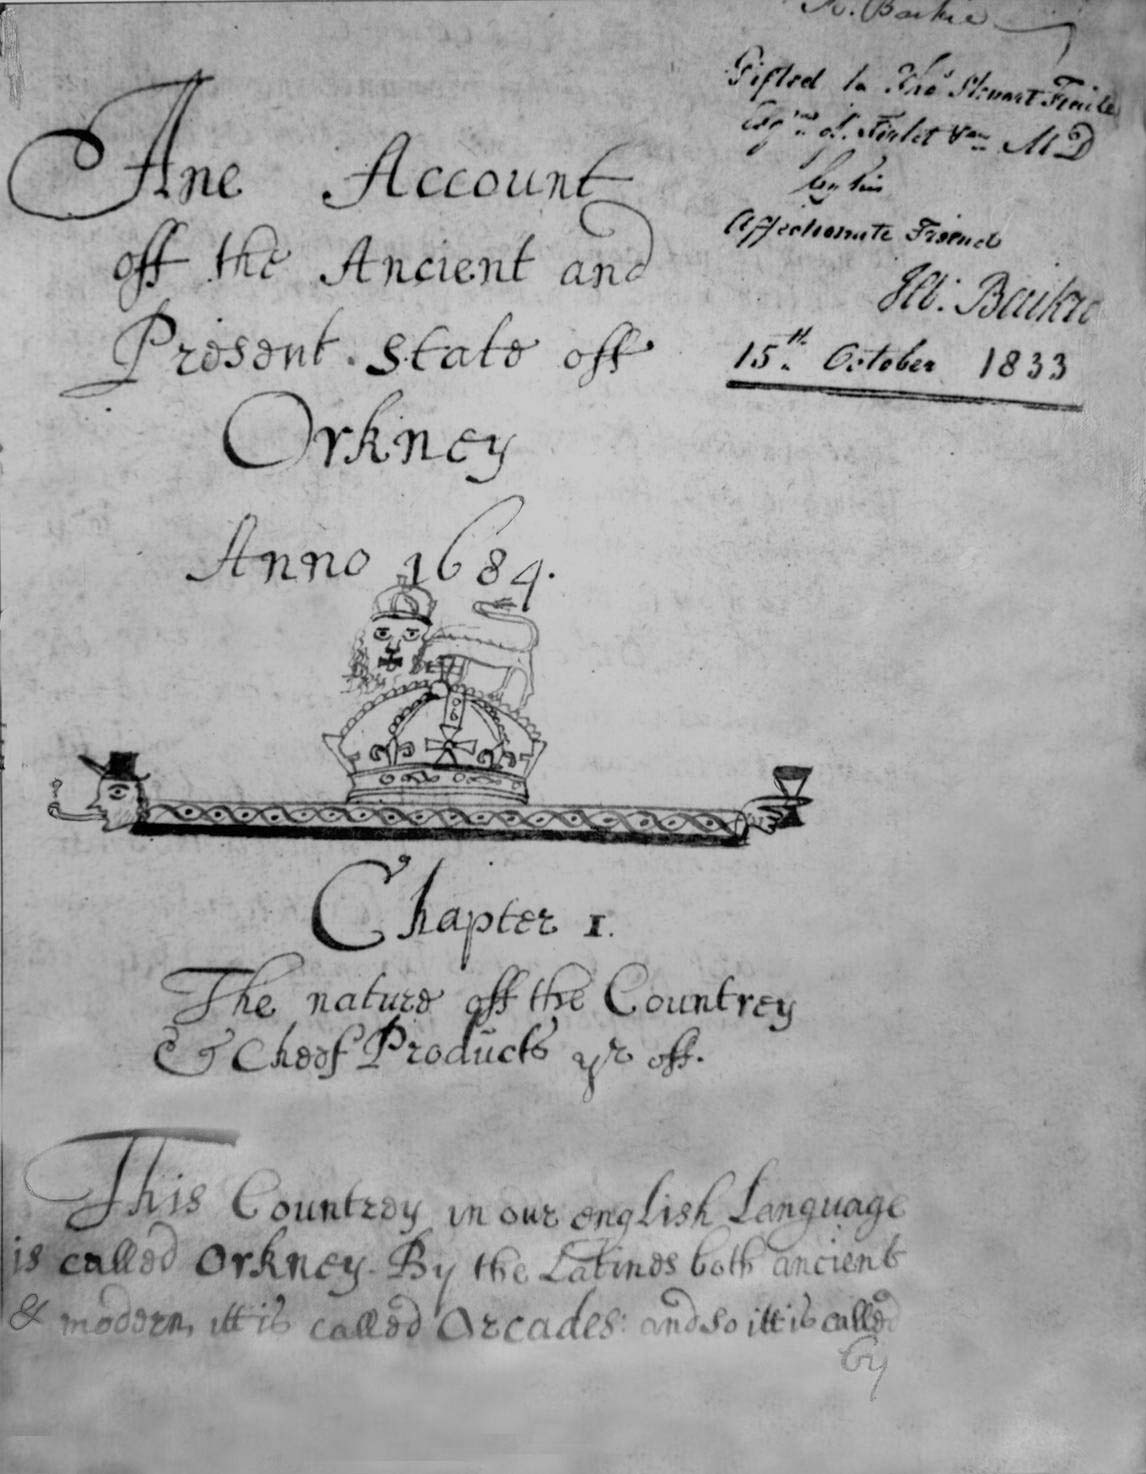 R. Baikie
Gifted to Thos Stewart Traill
Esqre of Tirlet &
M D
by his
Affectionate Friend
Baikie
15th October 1833
Ane Account
off the Ancient and
Present State off
Orkney
Anno 1684.
Chapter 1.
The nature off the Countrey
& Cheef Products yr off.
This Countrey in our english Language
is called Orkney. By the Latines both ancient
& modern, itt is called Orcades: and so itt is called
by